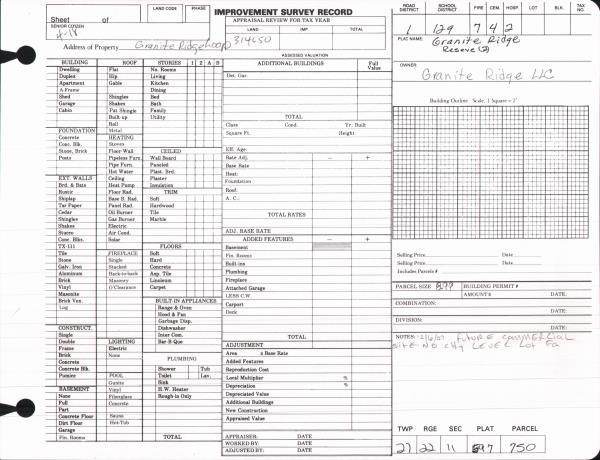 IMPROVEMENT SURVEY RECORD
Sheet of
LAND CODE PHASE
APPRAISAL REVIEW FOR TAX YEAR
LAND IMP TOTAL
SENIOR CITIZEN
Address of Property Granite Ridge Loop
ASSESSED VALUATION
ROAD DISTRICT SCHOOL DISTRICT FIRE CEM. HOSP LOT BLK. TAX NO.
1 129 7 4 2
PLAT NAME: Granite Ridge
Reserve (2)
OWNER:
Granite Ridge LLC
Building Outline Scale, 1 Square = 2'
BUILDING ROOF STORIES 1 2 A B
Dwelling Flat No. Rooms
Duplex Hip Living
Apartment Gable Kitchen
A-Frame Dining
Shed Shingles Bed
Garage Shakes Bath
Cabin Pat Shingle Family
Built-up Utility
Roll
FOUNDATION Metal
Concrete HEATING
Conc. Blk. Stoves CEILED
Stone, Brick Floor Wall Wall Board
Posts Pipeless Furn. Ceiling
Pipe Furn. Paneled
Hot Water Plast. Brd.
EXT. WALLS Ceiling Plaster
Brd. & Bats Heat Pump Insulation
Rustic Floor Rad. TRIM
Shiplap Base B. Rad. Soft
Tar Paper Panel Rad. Hardwood
Cedar Oil Burner Tile
Shingles Gas Burner Marble
Shakes Electric
Stucco Air Cond.
Conc. Blks. Solar
TX-111 FLOORS
Tile FIREPLACE Soft
Stone Single Hard
Galv. Iron Stacked Concrete
Aluminum Back-to-back Asp. Tile
Brick Masonry Linoleum
Vinyl O'Clearance Carpet
Masonite
Brick Ven. BUILT-IN APPLIANCES
Log Range & Oven
Hood & Fan
Garbage Disp.
CONSTRUCT. Dishwasher
Single Inter Com.
Double LIGHTING Bar-B-Que
Frame Electric
Brick None
Concrete PLUMBING
Concrete Blk. Shower Tub
Pumice POOL Toilet Lav.
Gunite Sink
BASEMENT Vinyl H.W. Heater
None Fiberglass Rough-in Only
Full Concrete
Part
Concrete Floor Sauna
Dirt Floor Hot-Tub
Garage
Fin. Rooms TOTAL
ADDITIONAL BUILDINGS Full Value
Det. Gar.
TOTAL
Class Cond. Yr. Built
Square Ft. Height
Eff. Age:
Rate Adj. − +
Base Rate
Heat:
Foundation
Roof:
A. C.:
TOTAL RATES
ADJ. BASE RATE
ADDED FEATURES − +
Basement
Fin. Rooms
Built-ins
Plumbing
Fireplace
Attached Garage
LESS C.W.
Carport
Deck
TOTAL
ADJUSTMENT
Area x Base Rate
Added Features
Reproduction Cost
Local Multiplier %
Depreciation %
Depreciated Value
Additional Buildings
New Construction
Appraised Value
APPRAISER: DATE
WORKED BY: DATE
ADJUSTED BY: DATE
Selling Price Date
Selling Price Date
Includes Parcels #
PARCEL SIZE BUILDING PERMIT #
AMOUNT $ DATE:
COMBINATION: DATE:
DIVISION: DATE:
NOTES: future commercial
site No city LEVEL Lot
TWP RGE SEC PLAT PARCEL
21 22 11 897 750